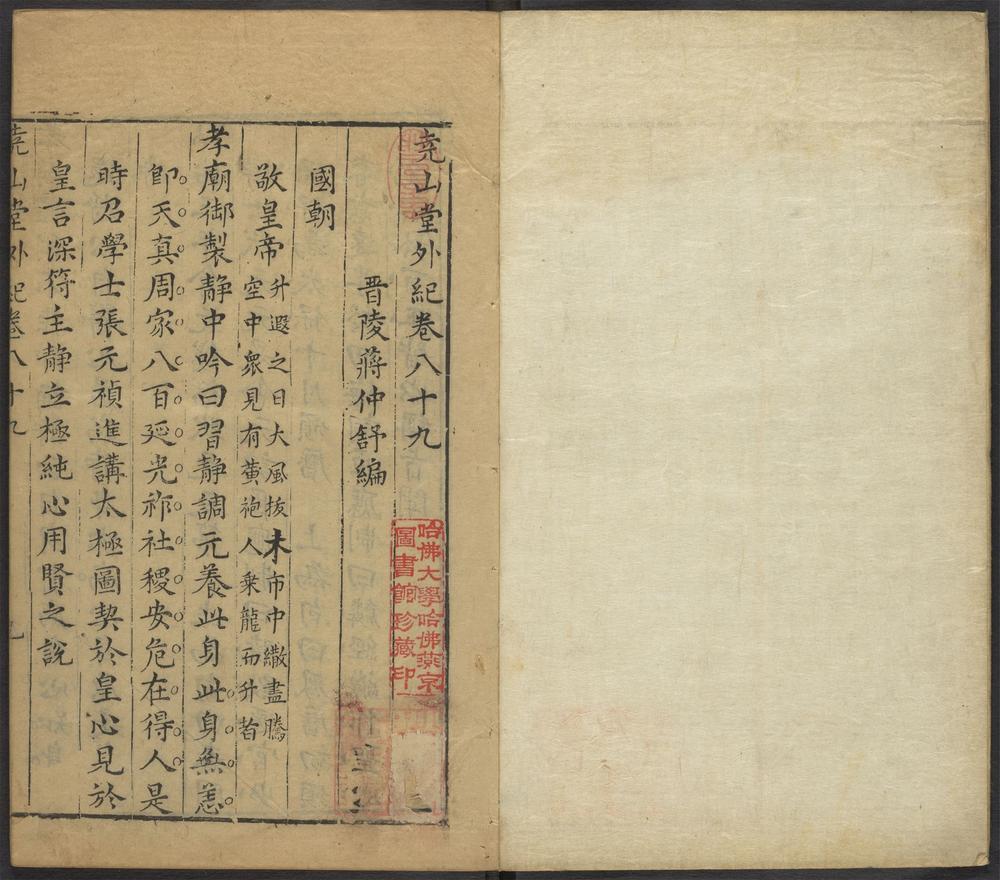 堯山堂外紀卷八十九
晉陵蔣仲舒編
國朝
敬皇帝
升遐之日大風拔木市中繖盡騰
空中衆見有黃袍人乗龍而升者
孝廟御製静中吟曰習静調元養此身此身無恙
即天真周家八百延光祚社稷安危在得人是
時召學士張元禎進講太極圖契於皇心見於
皇言深符主静立極純心用賢之說
堯山堂外紀卷八十九
哈佛大學哈佛燕京
圖書館珍藏印